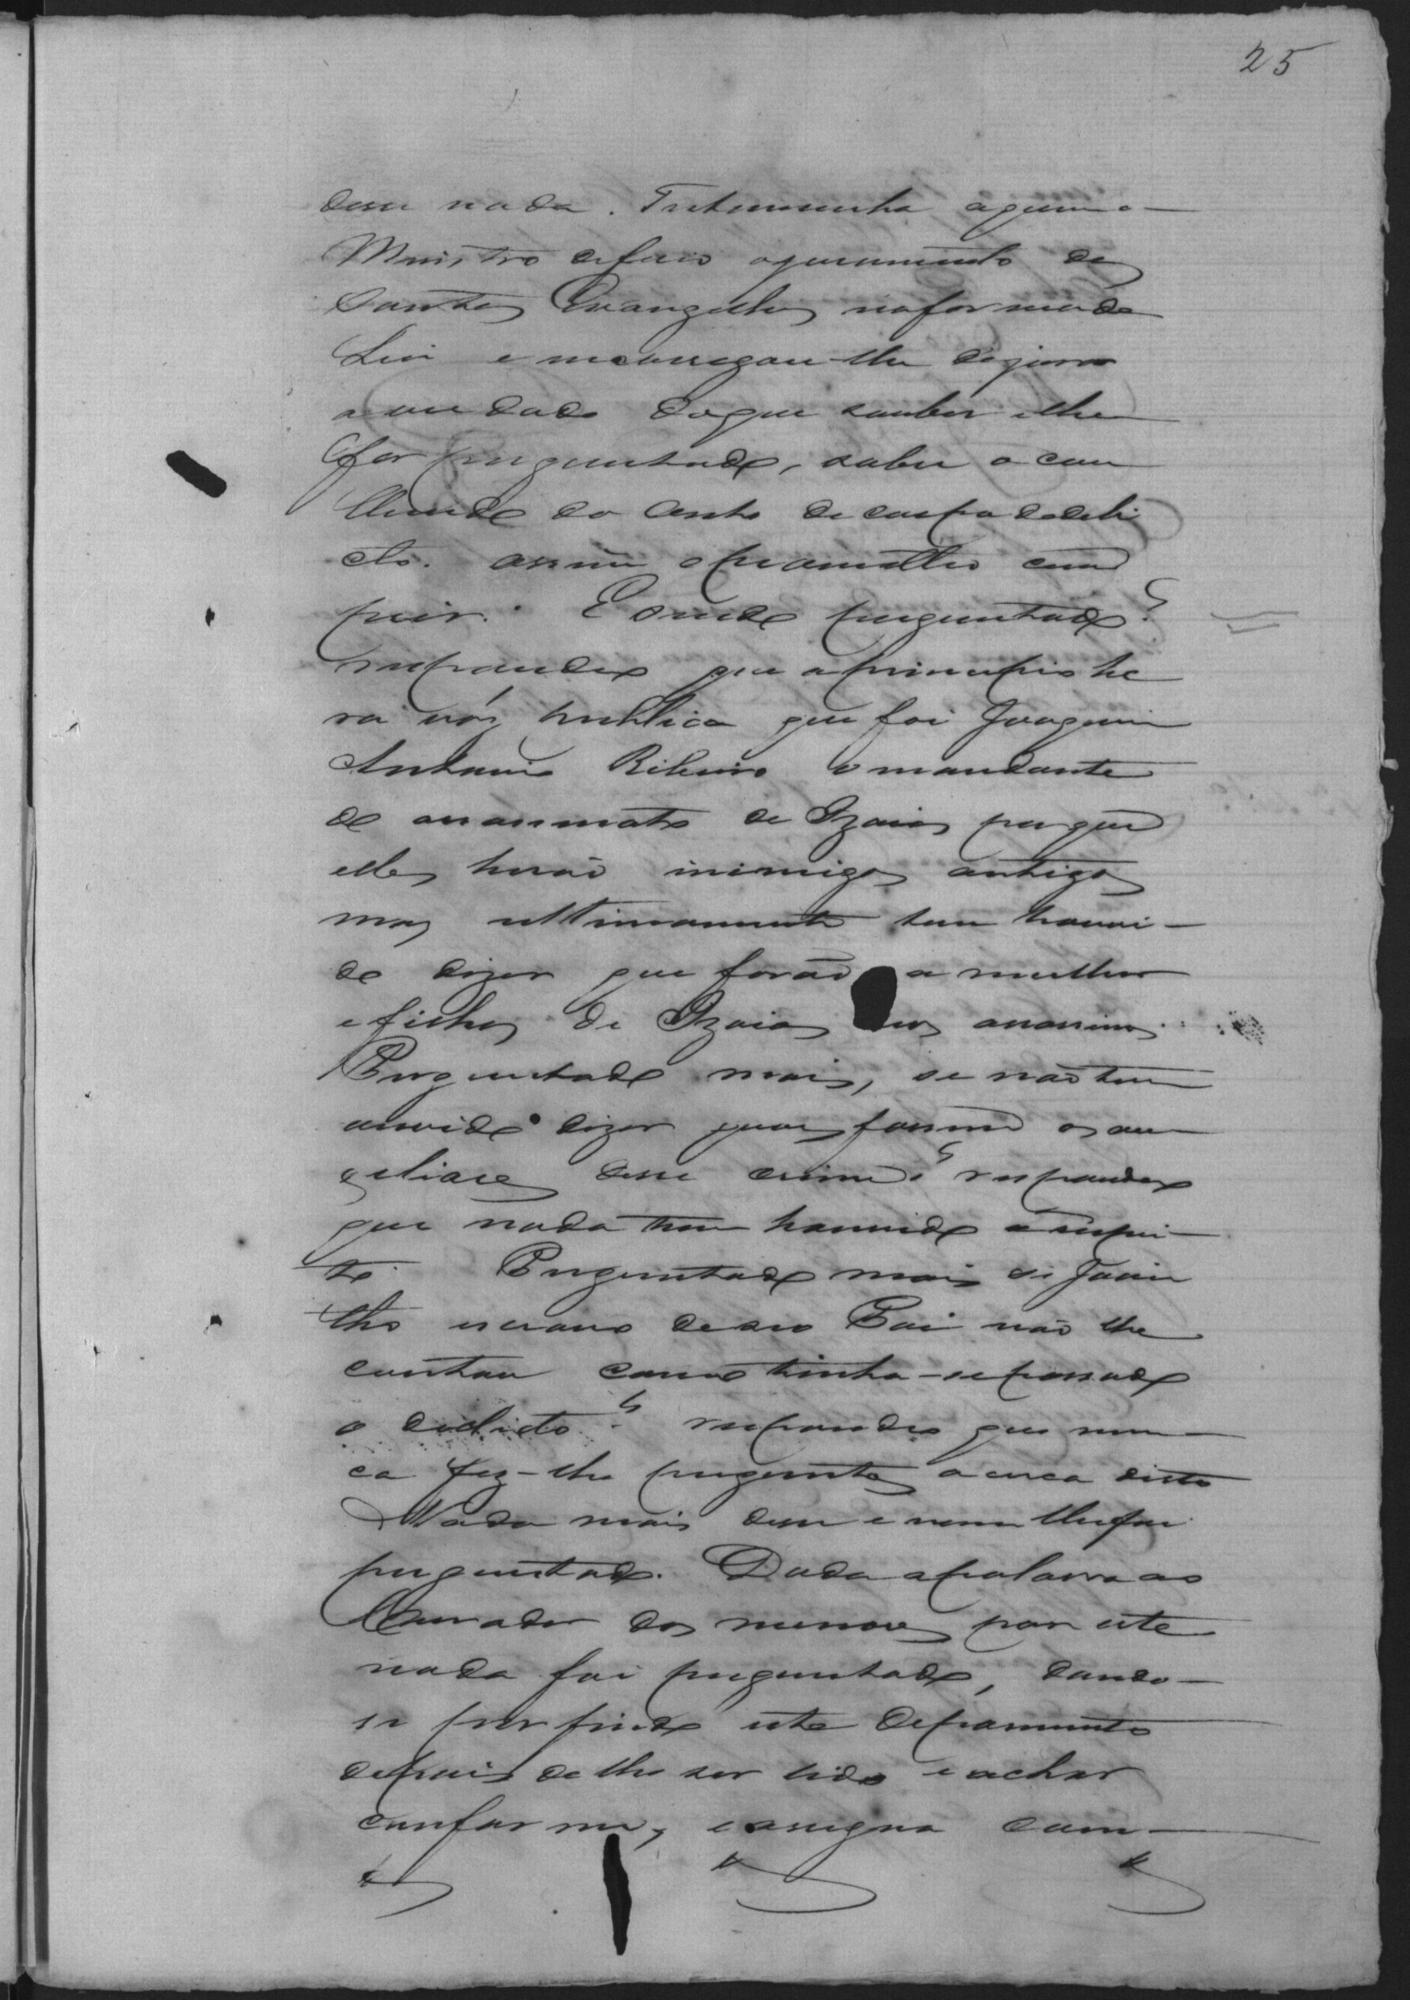 25
disse nada. Testemunha aquem o
Menistro deferio ojuramento dos
Santos Evangelhos naforma da
Lei e encarregou-lhe dejurar
a verdade doque souber elhe
for perguntado, sobre o con
theudo do Auto de corpo dedeli
cto. assim oprometteo cum
prir. E sendo perguntado?
respondeo que aprincipio he
ra vós publica que foi Joaquim
Antonio Ribeiro o mandante
do assassinato de Izaias porque
elles herão inimigos antigos
mas ultimamente tem houvi-
do dizer que forão a mulher
efilhos de Izaias os assassinos.
Perguntado mais, se não tem
ouvido dizer quais foram os au
xeliares desse crime? respondeo
que nada tem houvido arespei-
to. Perguntado mais se Joaim
tho escravo deseo Pai não lhe
contou como tinha-se passado
o delicto? respondeo que nun-
ca fez-lhe perguntas acerca disto
Nada mais disse e nem lhefoi
perguntado. Dada apalavra ao
Curador dos menores por este
nada foi perguntado, dando-
se por findo este depoimento
depois delhe ser lido e achar
conforme, e assigna com-